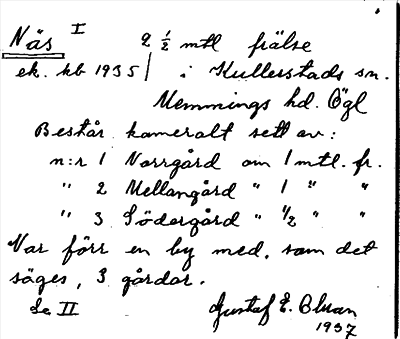 Näs I 2 ½ mtl frälse
ek. kb 1935/ i Kullerstads sn.
Memmings hd. Ögl
Består kameralt sett av:
n:r 1 Norrgård om 1 mtl. fr.
" 2 Mellangård " 1 " "
" 3 Södergård " ½ " "
Var förr en by med, som det
säges, 3 gårdar.
Se II Gustaf E. Oluan
1937